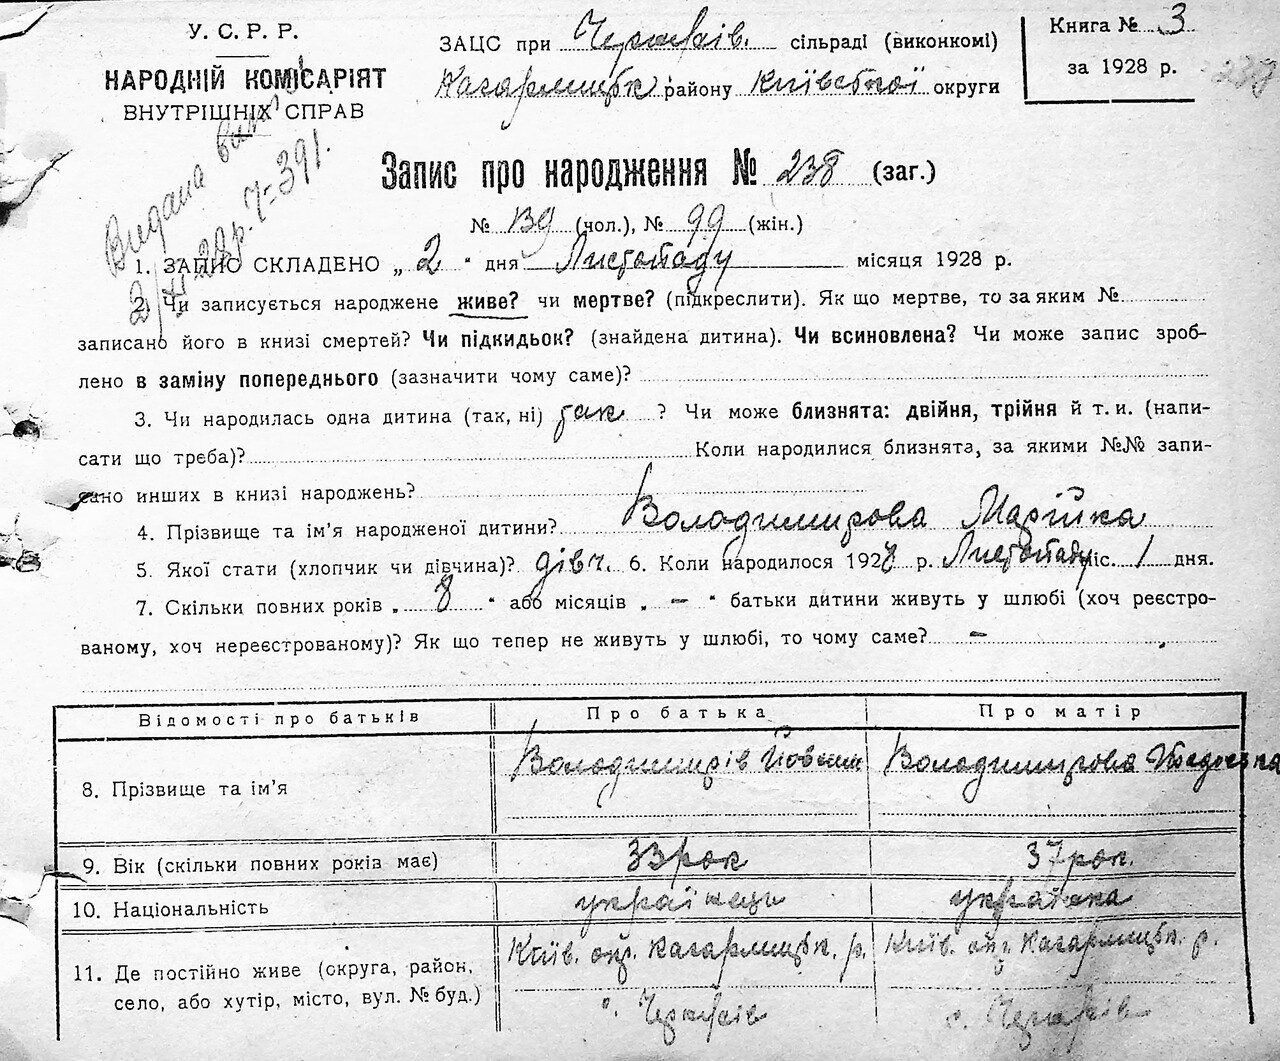 У. С. Р. Р.
НАРОДНІЙ КОМІСАРІЯТ
ВНУТРІШНІХ СПРАВ
ЗАЦС при Черняхів. сільраді (виконкомі)
Кагарлицьк району Київської округи
Книга № 3
за 1928 р.
238
Видана
Запис про народження № 238 (заг.)
№ 139 (чол.), № 99 (жін.)
1. ЗАПИС СКЛАДЕНО „ 2 " дня Листопаду місяця 1928 р.
2. Чи записується народжене живе? чи мертве? (підкреслити). Як що мертве, то за яким №
записано його в книзі смертей? Чи підкидьок? (знайдена дитина). Чи всиновлена? Чи може запис зроб-
лено в заміну попереднього (зазначити чому саме)?
3. Чи народилась одна дитина (так, ні) так ? Чи може близнята: двійня, трійня й т. и. (напи-
сати що треба)? Коли народилися близнята, за якими №№ запи-
сано инших в книзі народжень?
4. Прізвище та ім'я народженої дитини? Володимирова Марійка
5. Якої стати (хлопчик чи дівчина)? дівч. 6. Коли народилося 1928 р. Листопаду міс. 1 дня.
7. Скільки повних років „ 8 " або місяців „ — " батьки дитини живуть у шлюбі (хоч реєстро-
ваному, хоч нереєстрованому)? Як що тепер не живуть у шлюбі, то чому саме? —
Відомості про батьків Про батька Про матір
8. Прізвище та ім'я Володимирів Володимирова
9. Вік (скільки повних років має) 33 рок 37 рок.
10. Національність українець українка
11. Де постійно живе (округа, район, село, або хутір, місто, вул. № буд.) Київ. окр. Кагарлицьк. р. Київ. окр. Кагарлицьк. р.
с. Черняхів с. Черняхів